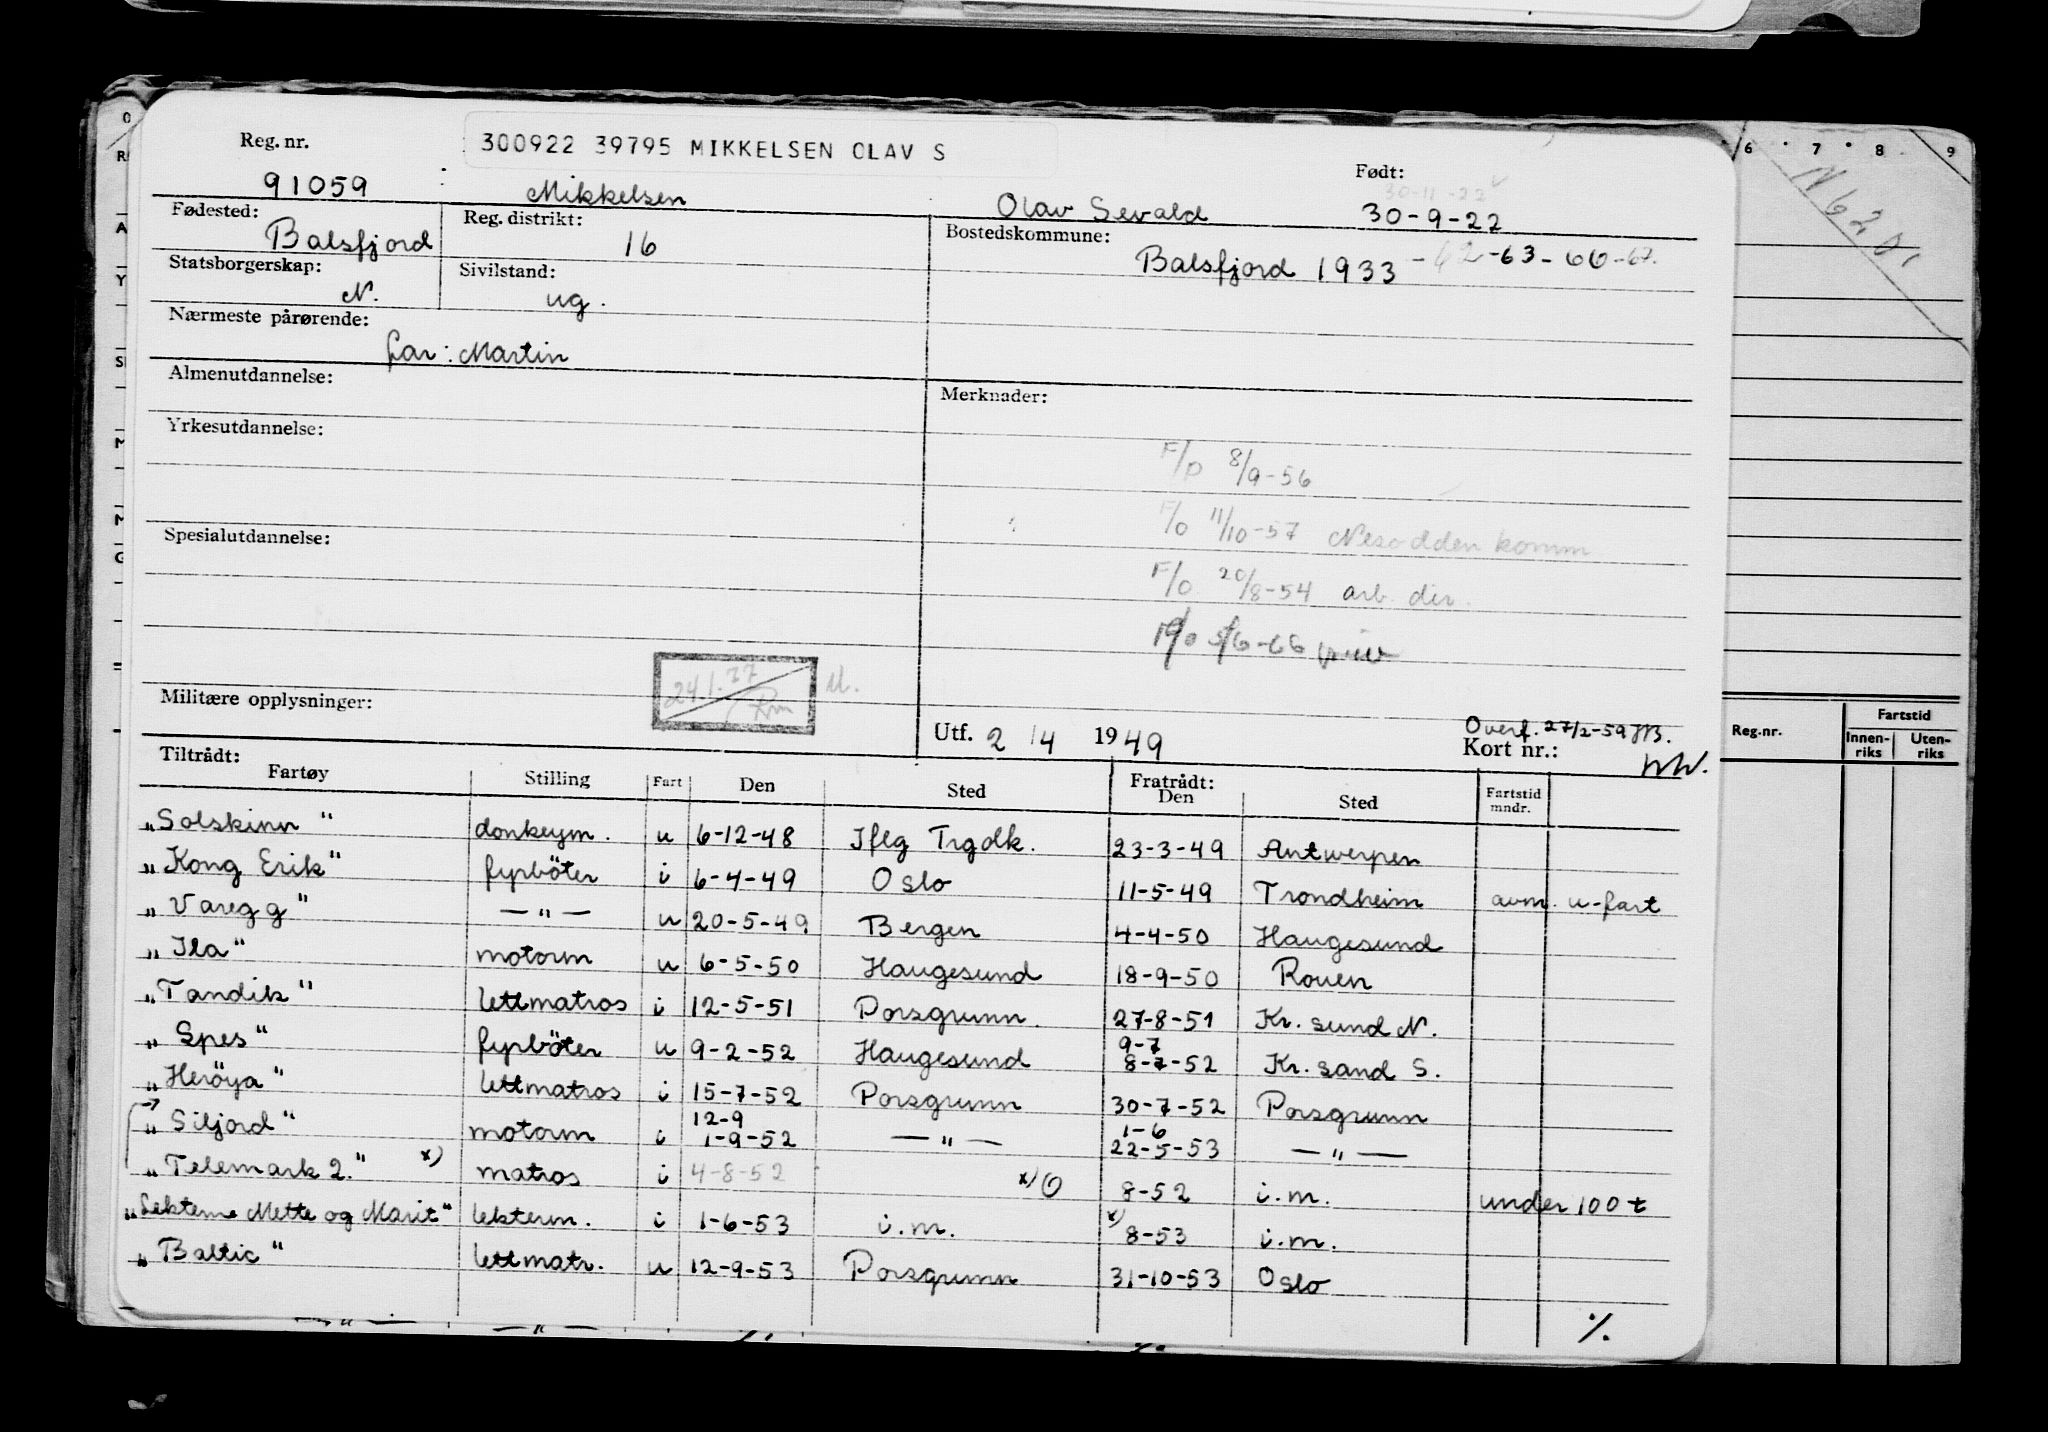 Reg. nr.
300922 39795 MIKKELSEN OLAV S
Født:
30-11-22
91059 Mikkelsen Olav Sevald 30-9-22
Fødested: Balsfjord
Reg. distrikt: 16
Bostedskommune: Balsfjord 1933 -62-63-66-67.
Statsborgerskap: N.
Sivilstand: ug.
Nærmeste pårørende: far: Martin
Almenutdannelse:
Merknader:
Yrkesutdannelse:
F/O 8/9-56
F/O 11/10-57 Nesodden komm
Spesialutdannelse:
F/O 20/8-54 arb. dir.
F/O 5/6-66
24.1.77
Militære opplysninger:
Utf. 2/4 1949
Overf. 27/2-59
Kort nr.:
Tiltrådt: Fratrådt:
Fartøy Stilling Fart Den Sted Den Sted Fartstid mndr.
"Solskinn" donkeym. u 6-12-48 Iflg Trgdk. 23-3-49 Antwerpen
"Kong Erik" fyrböter i 6-4-49 Oslo 11-5-49 Trondheim avm. u-fart
"Varegg" — " — u 20-5-49 Bergen 4-4-50 Haugesund
"Ila" motorm u 6-5-50 Haugesund 18-9-50 Rouen
"Tandik" lettmatros i 12-5-51 Porsgrunn. 27-8-51 Kr. sund N.
"Spes" fyrböter u 9-2-52 Haugesund 9-7 8-7-52 Kr. sand S.
"Heröya" lettmatros i 15-7-52 Porsgrunn 30-7-52 Porsgrunn
"Siljord" motorm i 12-9 1-9-52 — " — 1-6 22-5-53 — " —
"Telemark 2." x) matros i 4-8-52 x) O 8-52 i.m. under 100 t
"Lekterne Mette og Marit" lekterm. i 1-6-53 i.m. x) 8-53 i.m.
"Baltic" lettmatr. u 12-9-53 Porsgrunn 31-10-53 Oslo
%
6 7 8 9
Reg.nr.
Fartstid
Innen-riks Uten-riks